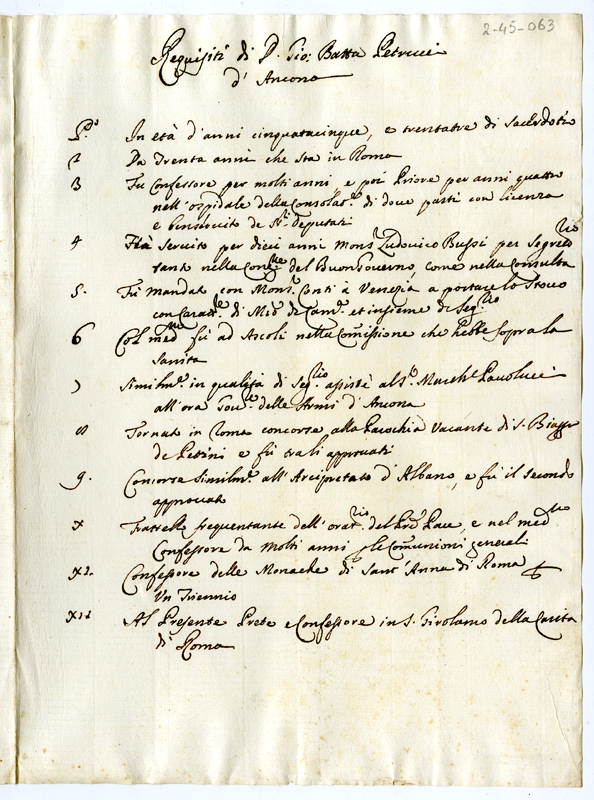 2-45-063
Requisiti di D. Gio: Batta Petrucci
d'Ancona
P.° In età d'anni cinquatacinque, e trentatre di Sacerdotio
2 Da Trenta anni che sta in Roma
3 Fu Confessore per molti anni, e poi Priore per anni quattro
nell'ospidale della Consolat.e di dove partì con licenza
e benservito de SS.ri Deputati
4 Hà servito per dieci anni Mons.r Ludovico Bussi per Segret.rio
tanto nella Con.gne del Buon Governo, come nella Consulta
5. Fù mandato con Mons.r Conti à Venezia a portare lo Stocco
con Caratt.re di M.ro di Cam.a et insieme di Seg.rio
6 Col med.mo fù ad Ascoli nella Comissione che hebbe sopra la
Sanita
7 Similm.te in qualità di Seg.rio assistè al S.r March.e Pavolucci
all'ora Gov.re delle Armi d'Ancona
8 Tornato in Roma concorse alla Parochia Vacante di S. Biaggio
de Pettini e fù tra li approvati
9. Concorse Similm.te all'Arcipretato d'Albano, e fù il secondo
approvato
X Frattello frequentante dell'orat.rio del Pre' Pave, e nel med.mo
Confessore da molti anni p le Comunioni generali
XI. Confessore delle Monache di Sant'Anna di Roma p
Un Triennio
XII Al Presente Prete e Confessore in S. Girolamo della Carita
di Roma